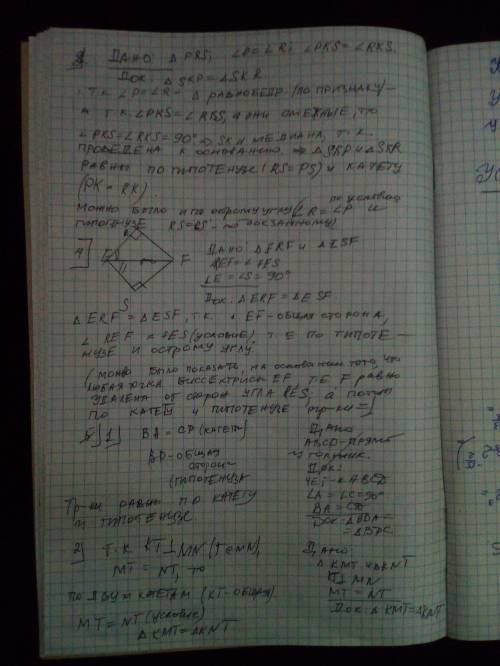 Дано: △ PRS; ∠P=∠R; ∠PKS=∠RKS.
Док: △SKP=△SKR
т.к ∠P=∠R ⇒ △ равнобедр (по признаку)
а т.к ∠PKS=∠RKS, а они смежные, то
∠PKS=∠RKS=90° ⇒ SK и медиана, т.к
проведена к основанию ⇒ △SKP и △SKR
равны по гипотенузе (RS=PS) и катету
(PK=RK).
можно было и по острому углу (∠R=∠P по условию и
гипотенузе RS=PS - по доказанному)
4
R
E
F
S
Дано: △ERF и △ESF
∠REF=∠FES
∠R=∠S=90°
Док: △ERF=△ESF
△ERF=△ESF, т.к. EF-общая сторона,
∠REF=∠FES (условие) т.е по гипоте-
нузе и острому углу.
(можно было показать, на основании того, что
любая точка биссектрисы EF т.е. F равно
удалена от сторон угла RES, а потом
по катету и гипотенузе тр-ки =)
5 1) BA=CD (катеты)
BD-общая
сторона
(гипотенуза
Тр-ки равны по катету
и гипотенузе
Дано
ABCD-прямо
угольник.
Док:
∠A=∠C=90°
BA=CD
Док: △BDA=
=△BDC
2) т.к KT⊥MN (T∈MN),
MT=NT, то
по двум катетам (KT-общая)
MT=NT (условие)
△KMT=△KNT
Дано:
△KMT и △KNT
KT⊥MN
MT=NT
Док: △KMT=△KNT